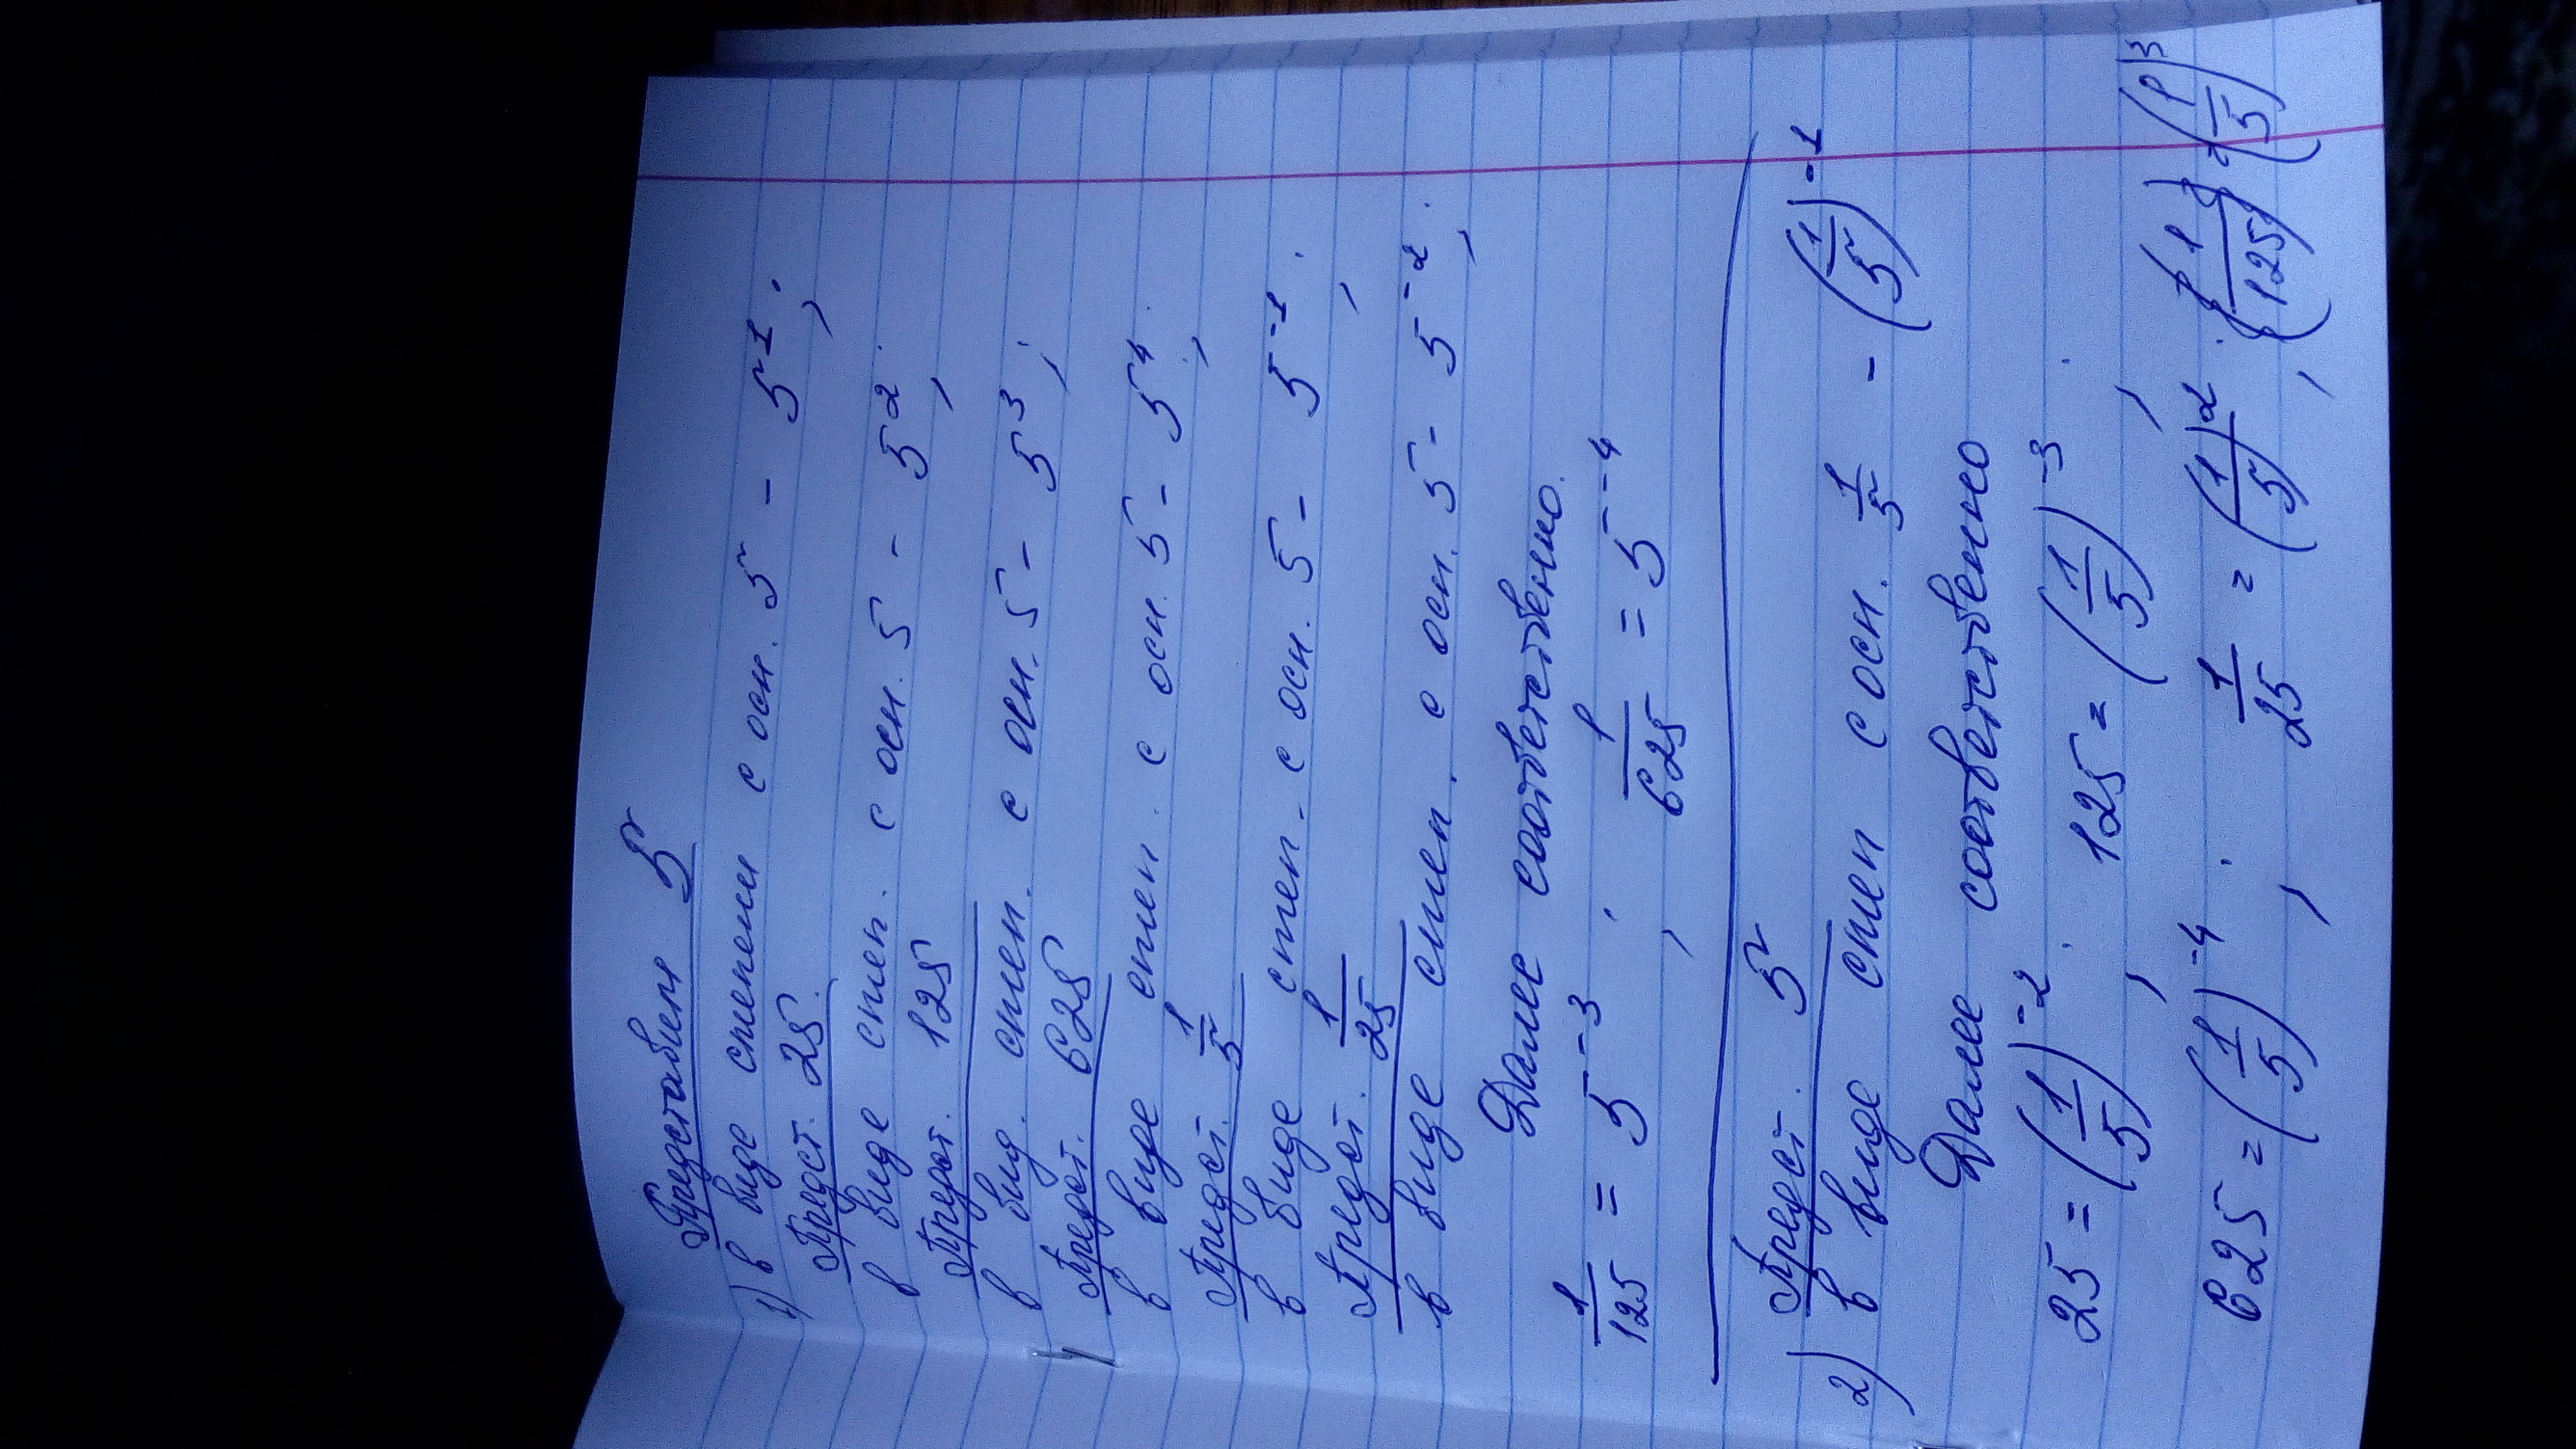 Представим 5
1) в виде степени с осн. 5 - 5¹;
Предст. 25
в виде степ. с осн. 5 - 5²;
Предст. 125
в вид. степ. с осн. 5 - 5³;
Предст. 625
в виде степ. с осн. 5 - 5⁴;
Предст. 1/5
в виде степ. с осн. 5 - 5⁻¹;
Предст. 1/25
в виде степ. с осн. 5 - 5⁻²;
Далее соответственно.
1/125 = 5⁻³; 1/625 = 5⁻⁴
Предст. 5
2) в виде степ с осн. 1/5 - (1/5)⁻¹
Далее соответственно
25 = (1/5)⁻²; 125 = (1/5)⁻³;
625 = (1/5)⁻⁴; 1/25 = (1/5)²; (1/125) = (1/5)³